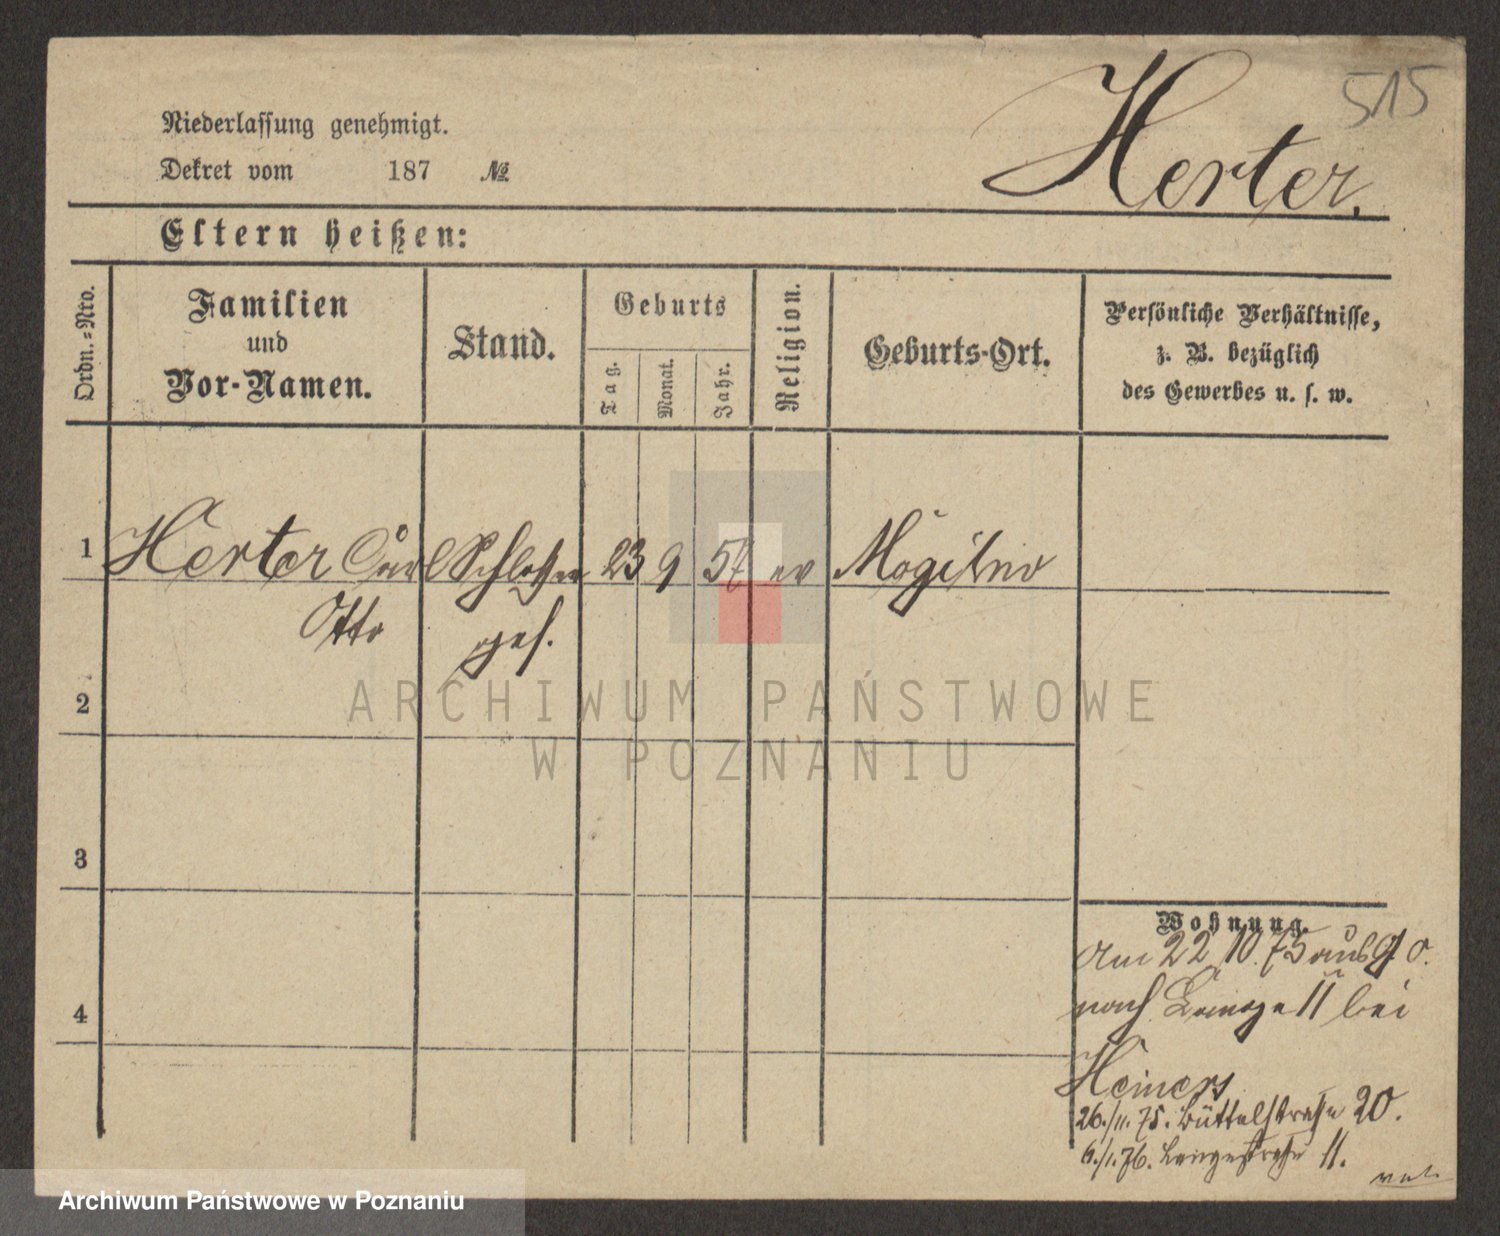 515
Herter.
Niederlassung genehmigt.
Dekret vom 187 №
Eltern heißen:
Ordn.=Nro.
Familien
und
Vor-Namen.
Stand.
Geburts
Tag.
Monat.
Jahr.
Religion.
Geburts-Ort.
Persönliche Verhältnisse,
z. B. bezüglich
des Gewerbes u. s. w.
1 Herter Carl Schlosser 23 9 57 ev Mogilno
Otto ges.
2
3
4
Wohnung.
Am 22 10 75 aus
nach Lange 11 bei
Heiners
26./11. 75. Büttelstraße 20.
6./1. 76. Langestraße 11.
ARCHIWUM PAŃSTWOWE
W POZNANIU
Archiwum Państwowe w Poznaniu